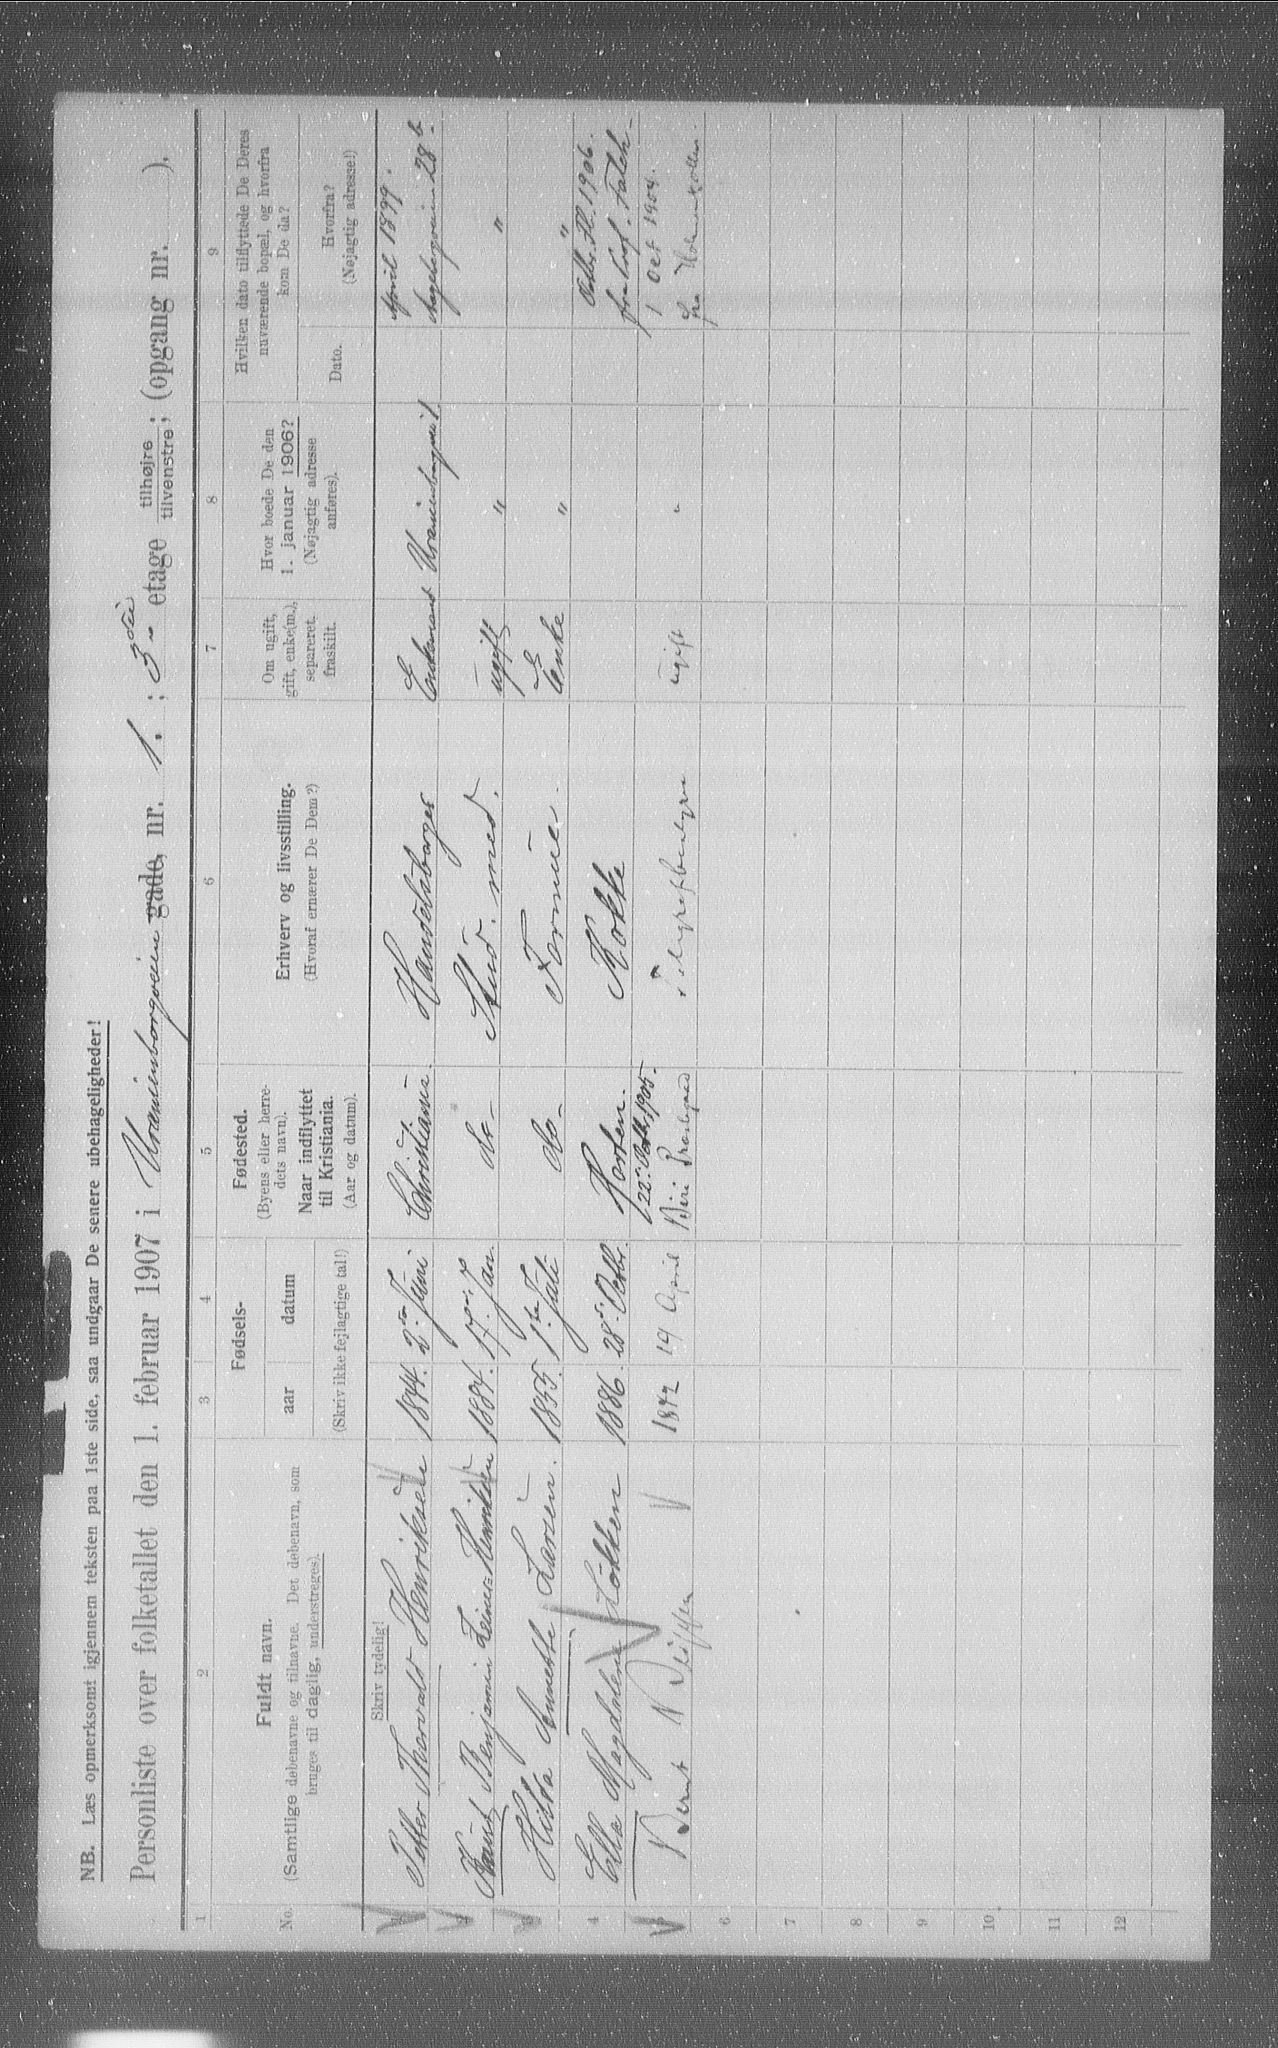 NB. Læs opmerksomt igjennem teksten paa 1ste side, saa undgaar De senere ubehageligheder!
Personliste over folketallet den 1. februar 1907 i Uranienborgveien gade, nr. 1. ; 3die etage tilhøjre tilvenstre; (opgang nr. ).
1 2 3 4 5 6 7 8 9
No.
Fuldt navn.
(Samtlige døbenavne og tilnavne. Det døbenavn, som
bruges til daglig, understreges).
Fødsels-
aar datum
(Skriv ikke fejlagtige tal!)
Fødested.
(Byens eller herre-
dets navn).
Naar indflyttet
til Kristiania.
(Aar og datum).
Erhverv og livsstilling.
(Hvoraf ernærer De Dem?)
Om ugift,
gift, enke(m.),
separeret,
fraskilt.
Hvor boede De den
1. januar 1906?
(Nøjagtig adresse
anføres).
Hvilken dato tilflyttede De Deres
nuværende bopæl, og hvorfra
kom De da?
Dato.
Hvorfra?
(Nøjagtig adresse!)
Skriv tydelig!
Petter Thorvald Henriksen 1844. 2den Juni Christiania. Handelsborger Enkemand Uranienborgveil 1. April 1899.
28 b.
Knud Benjamin Henriksen 1884. 17. Jan. do- Stud. med. ugift " "
3 Hilda Annette Larsen. 1855. 1ste Juli do- Formue. Enke " "
4 Ella Magdalene Løkken 1886. 28. Octbr. Horten. Kokke 1906.
22. 1905. fra Prof.
5 Bernt 1872 19 April Biri Præstegaard ugift " 1 Oct 1904.
fra Holmenkollen
6
7
8
9
10
11
12